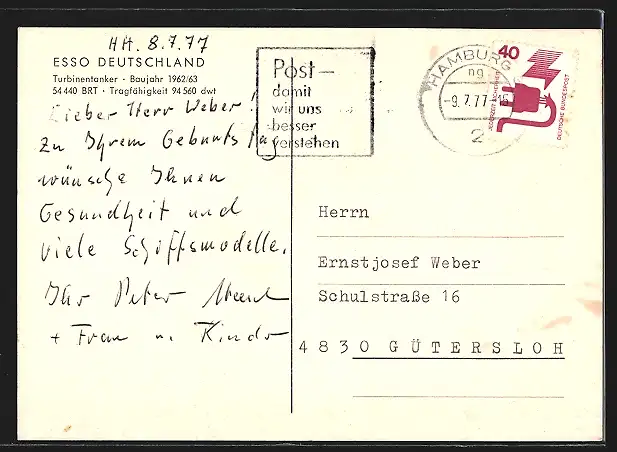 HH. 8.7.77
ESSO DEUTSCHLAND
Turbinentanker · Baujahr 1962/63
54 440 BRT · Tragfähigkeit 94 560 dwt
Lieber Herr Weber!
Zu Ihrem Geburtstag
wünsche Ihnen
Gesundheit und
viele Schiffsmodelle.
Ihr Peter
+ Frau u. Kinder
Post –
damit
wir uns
besser
verstehen
HAMBURG
ng
-9.7.77-16
2
40
JEDERZEIT SICHERHEIT
DEUTSCHE BUNDESPOST
Herrn
Ernstjosef Weber
Schulstraße 16
4830 GÜTERSLOH